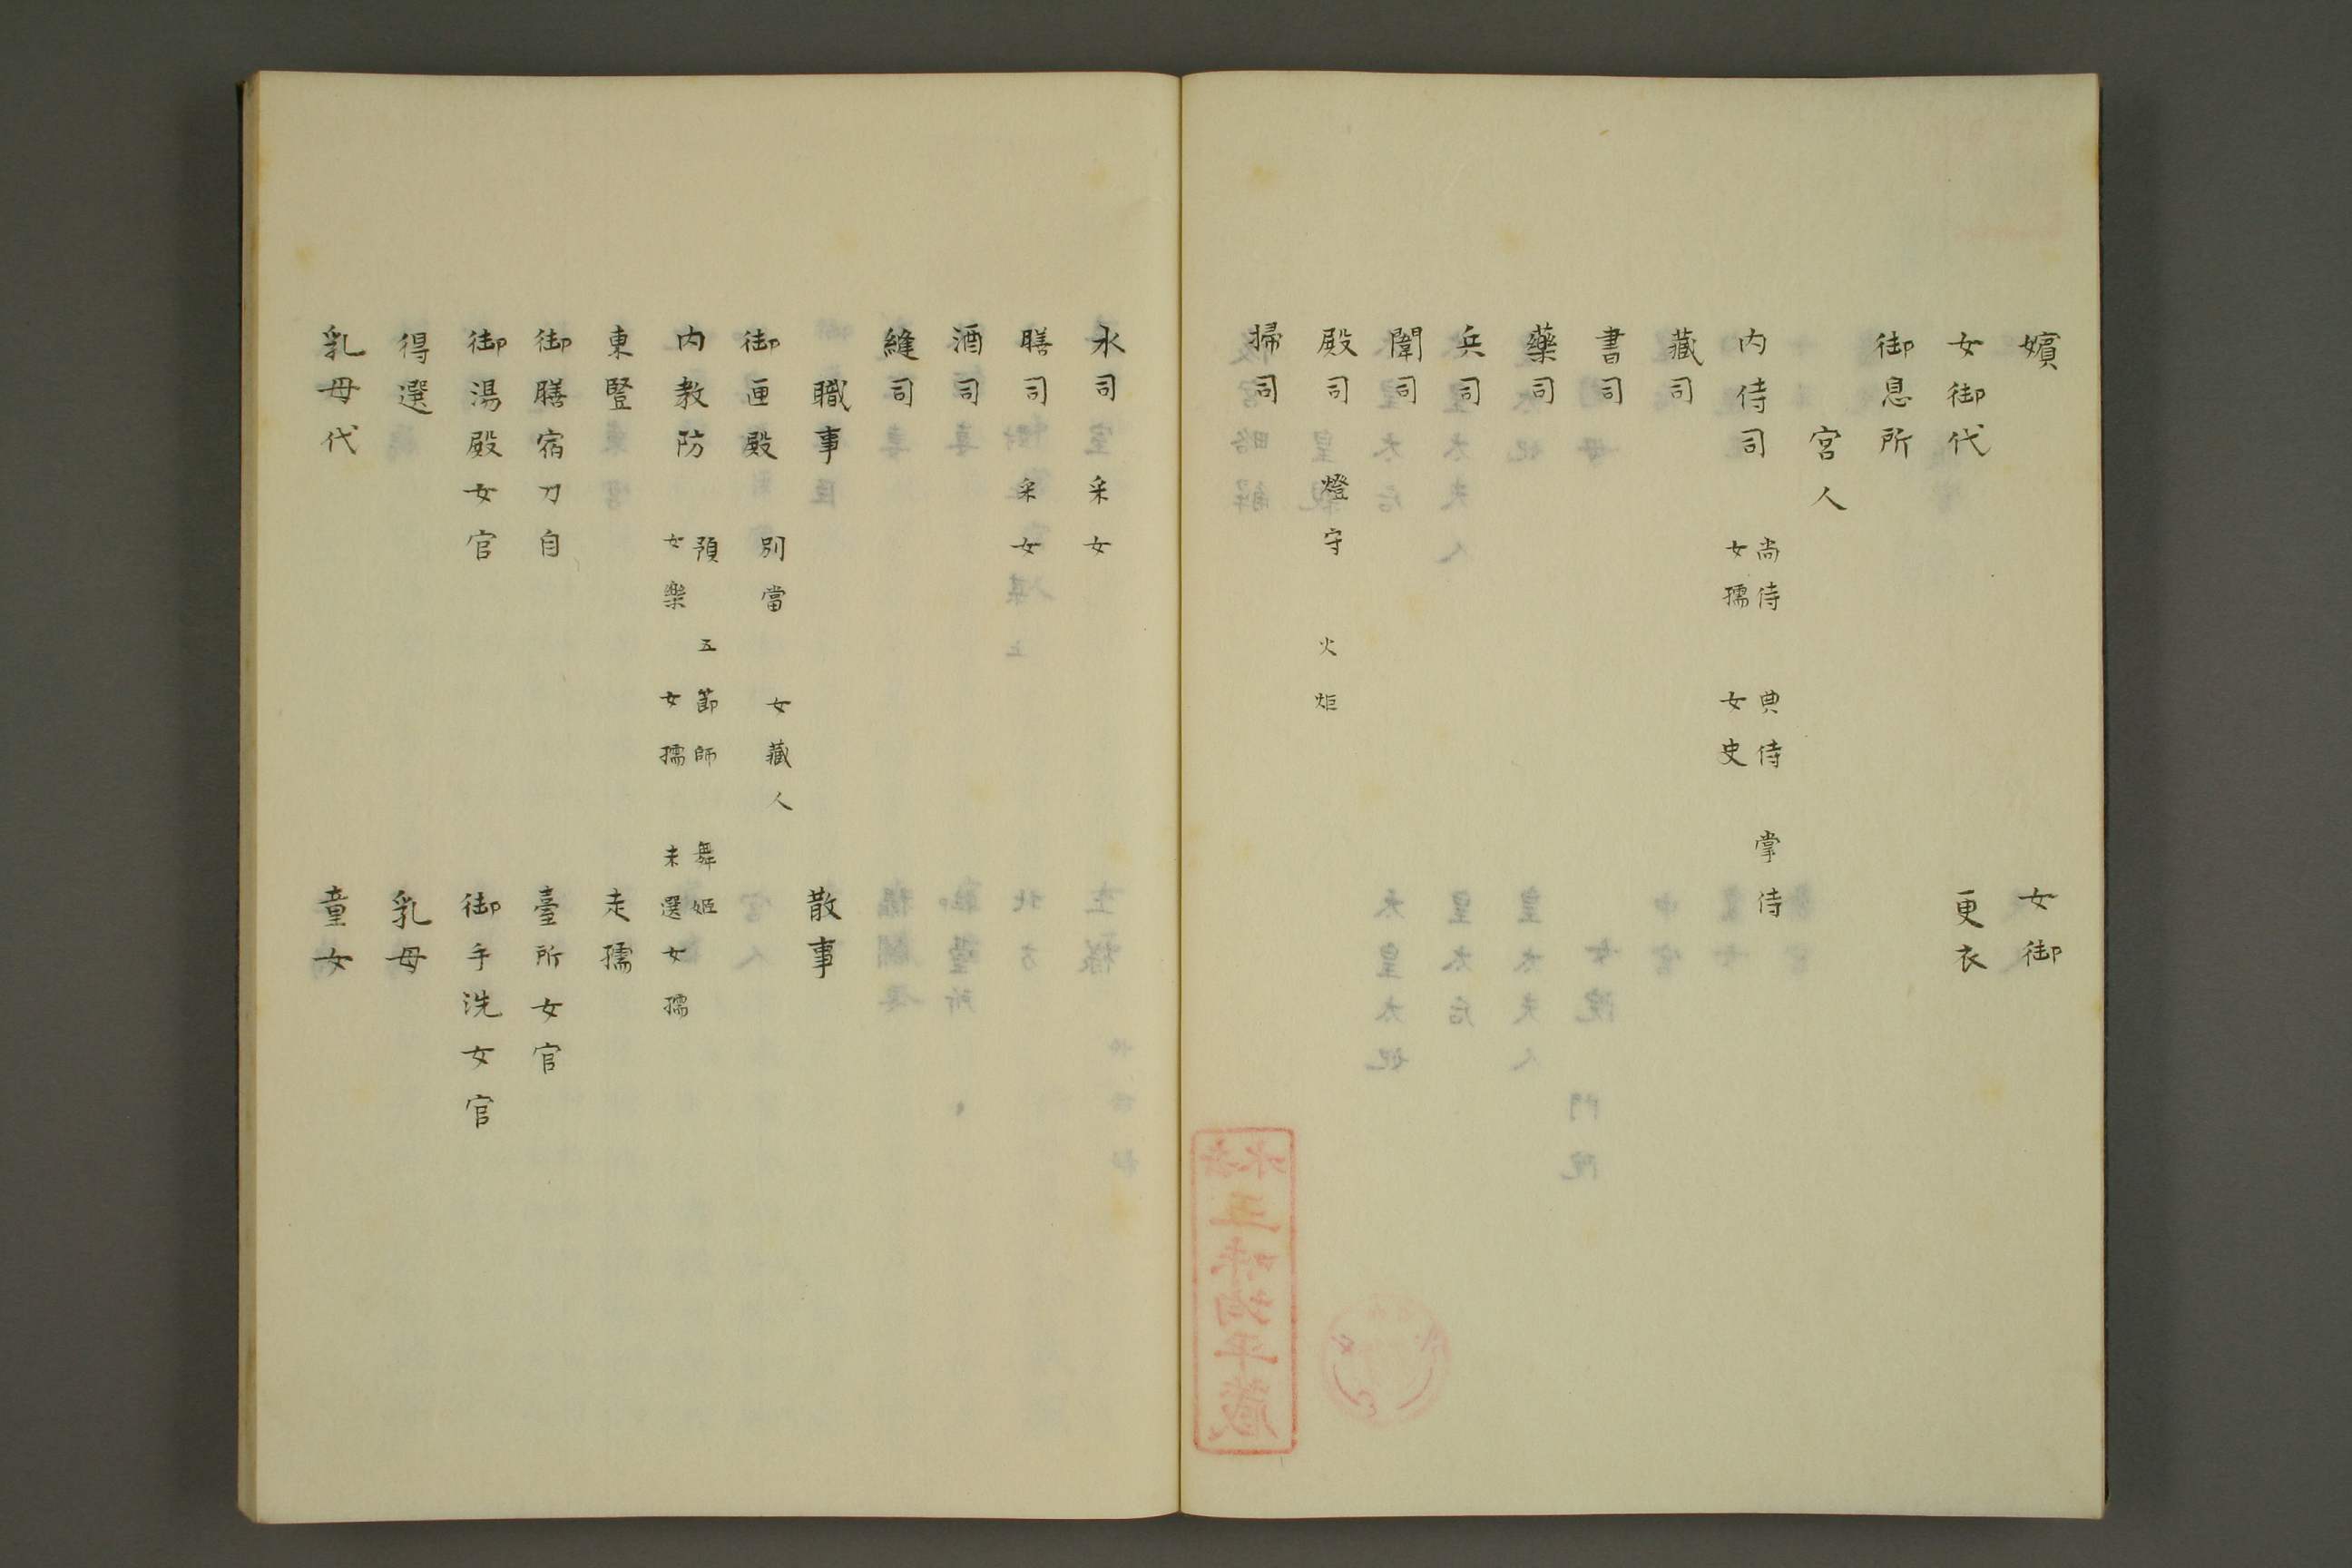 嬪 女御
女御代 更衣
御息所
宮人
内侍司 尚侍 典侍 掌侍
女孺 女史
藏司
書司
藥司
兵司
闈司
殿司 燈守 火炬
掃司
水司 采女
膳司 采女
酒司
縫司
職事 散事
御匣殿 別當 女藏人
内教防 預 五節師 舞姬
女樂 女孺 未選女孺
東豎 走孺
御膳宿刀自 臺所女官
御湯殿女官 御手洗女官
得選 乳母
乳母代 童女